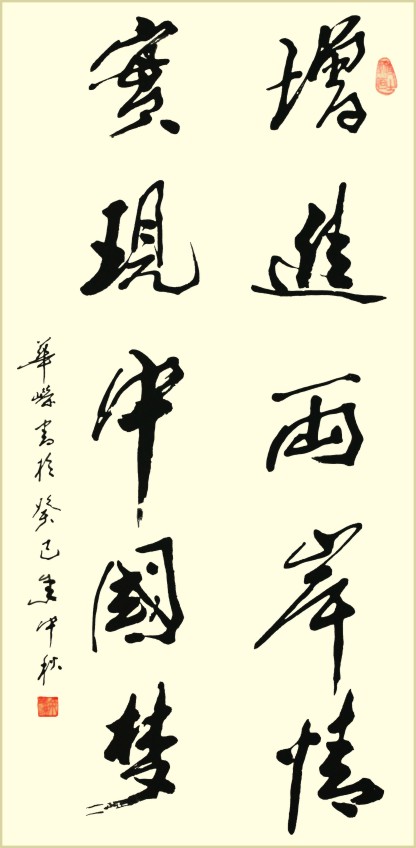 增進两岸情
實現中國梦
華榮書於癸巳年中秋